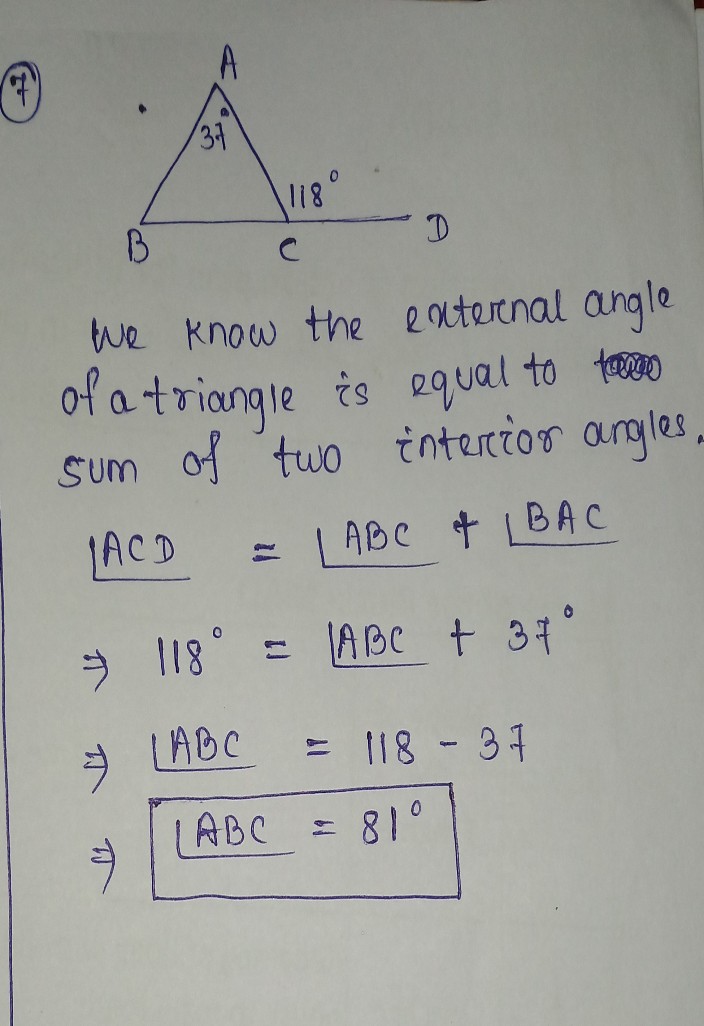 7
A
37°
118°
B
C
D
We know the external angle
of a triangle is equal to
sum of two interior angles.
∠ACD = ∠ABC + ∠BAC
⇒ 118° = ∠ABC + 37°
⇒ ∠ABC = 118 - 37
⇒ ∠ABC = 81°